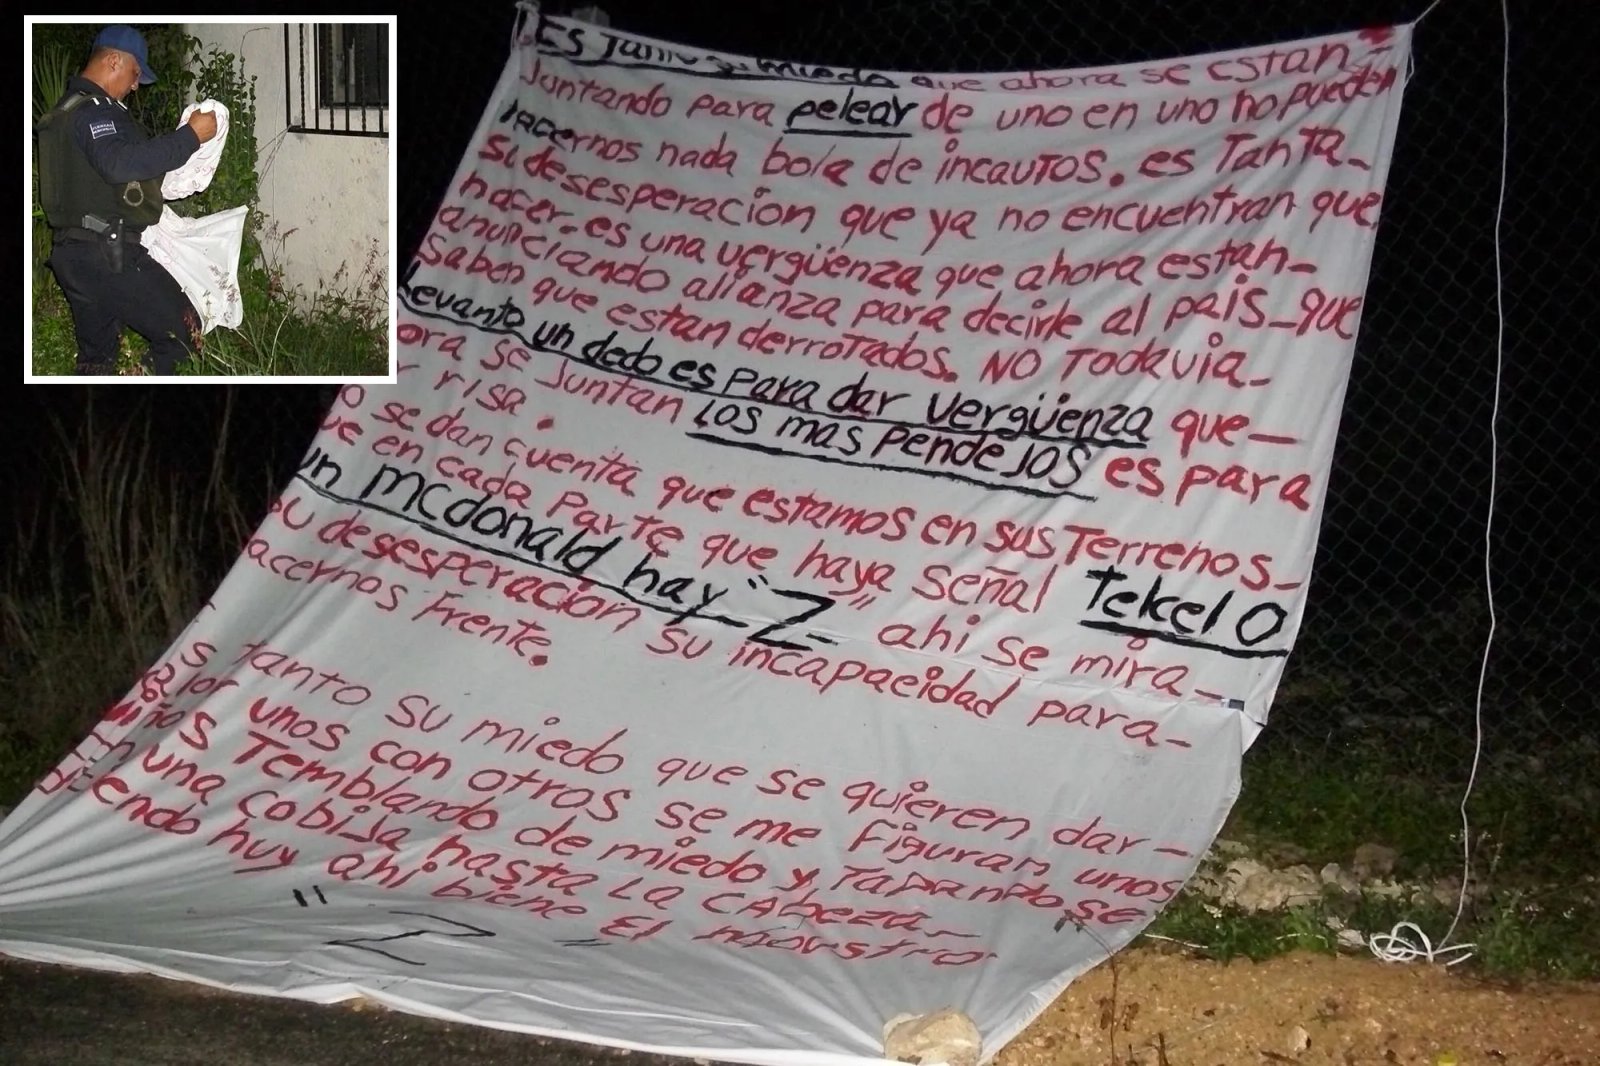 Es tanto su miedo que ahora se estan-
Juntando para pelear de uno en uno no pueden
hacernos nada bola de incautos. es Tanta-
su desesperacion que ya no encuentran que
hacer-es una vergüenza que ahora estan-
anunciando alianza para decirle al pais-que
Saben que estan derrotados. NO Todavia-
Levanto un dedo es para dar vergüenza que-
ora se Juntan Los mas PendeJos es para
r risa.
o se dan cuenta que estamos en sus Terrenos-
ue en cada Parte que haya señal Telcel O
un mcdonald hay "Z" ahi se mira-
su desesperacion su incapacidad para-
acernos Frente.
s tanto su miedo que se quieren dar-
alor unos con otros se me Figuran unos
niños Temblando de miedo y Tapandose
n una cobija hasta La cabeza-
diciendo huy ahi biene El Monstro
"Z"